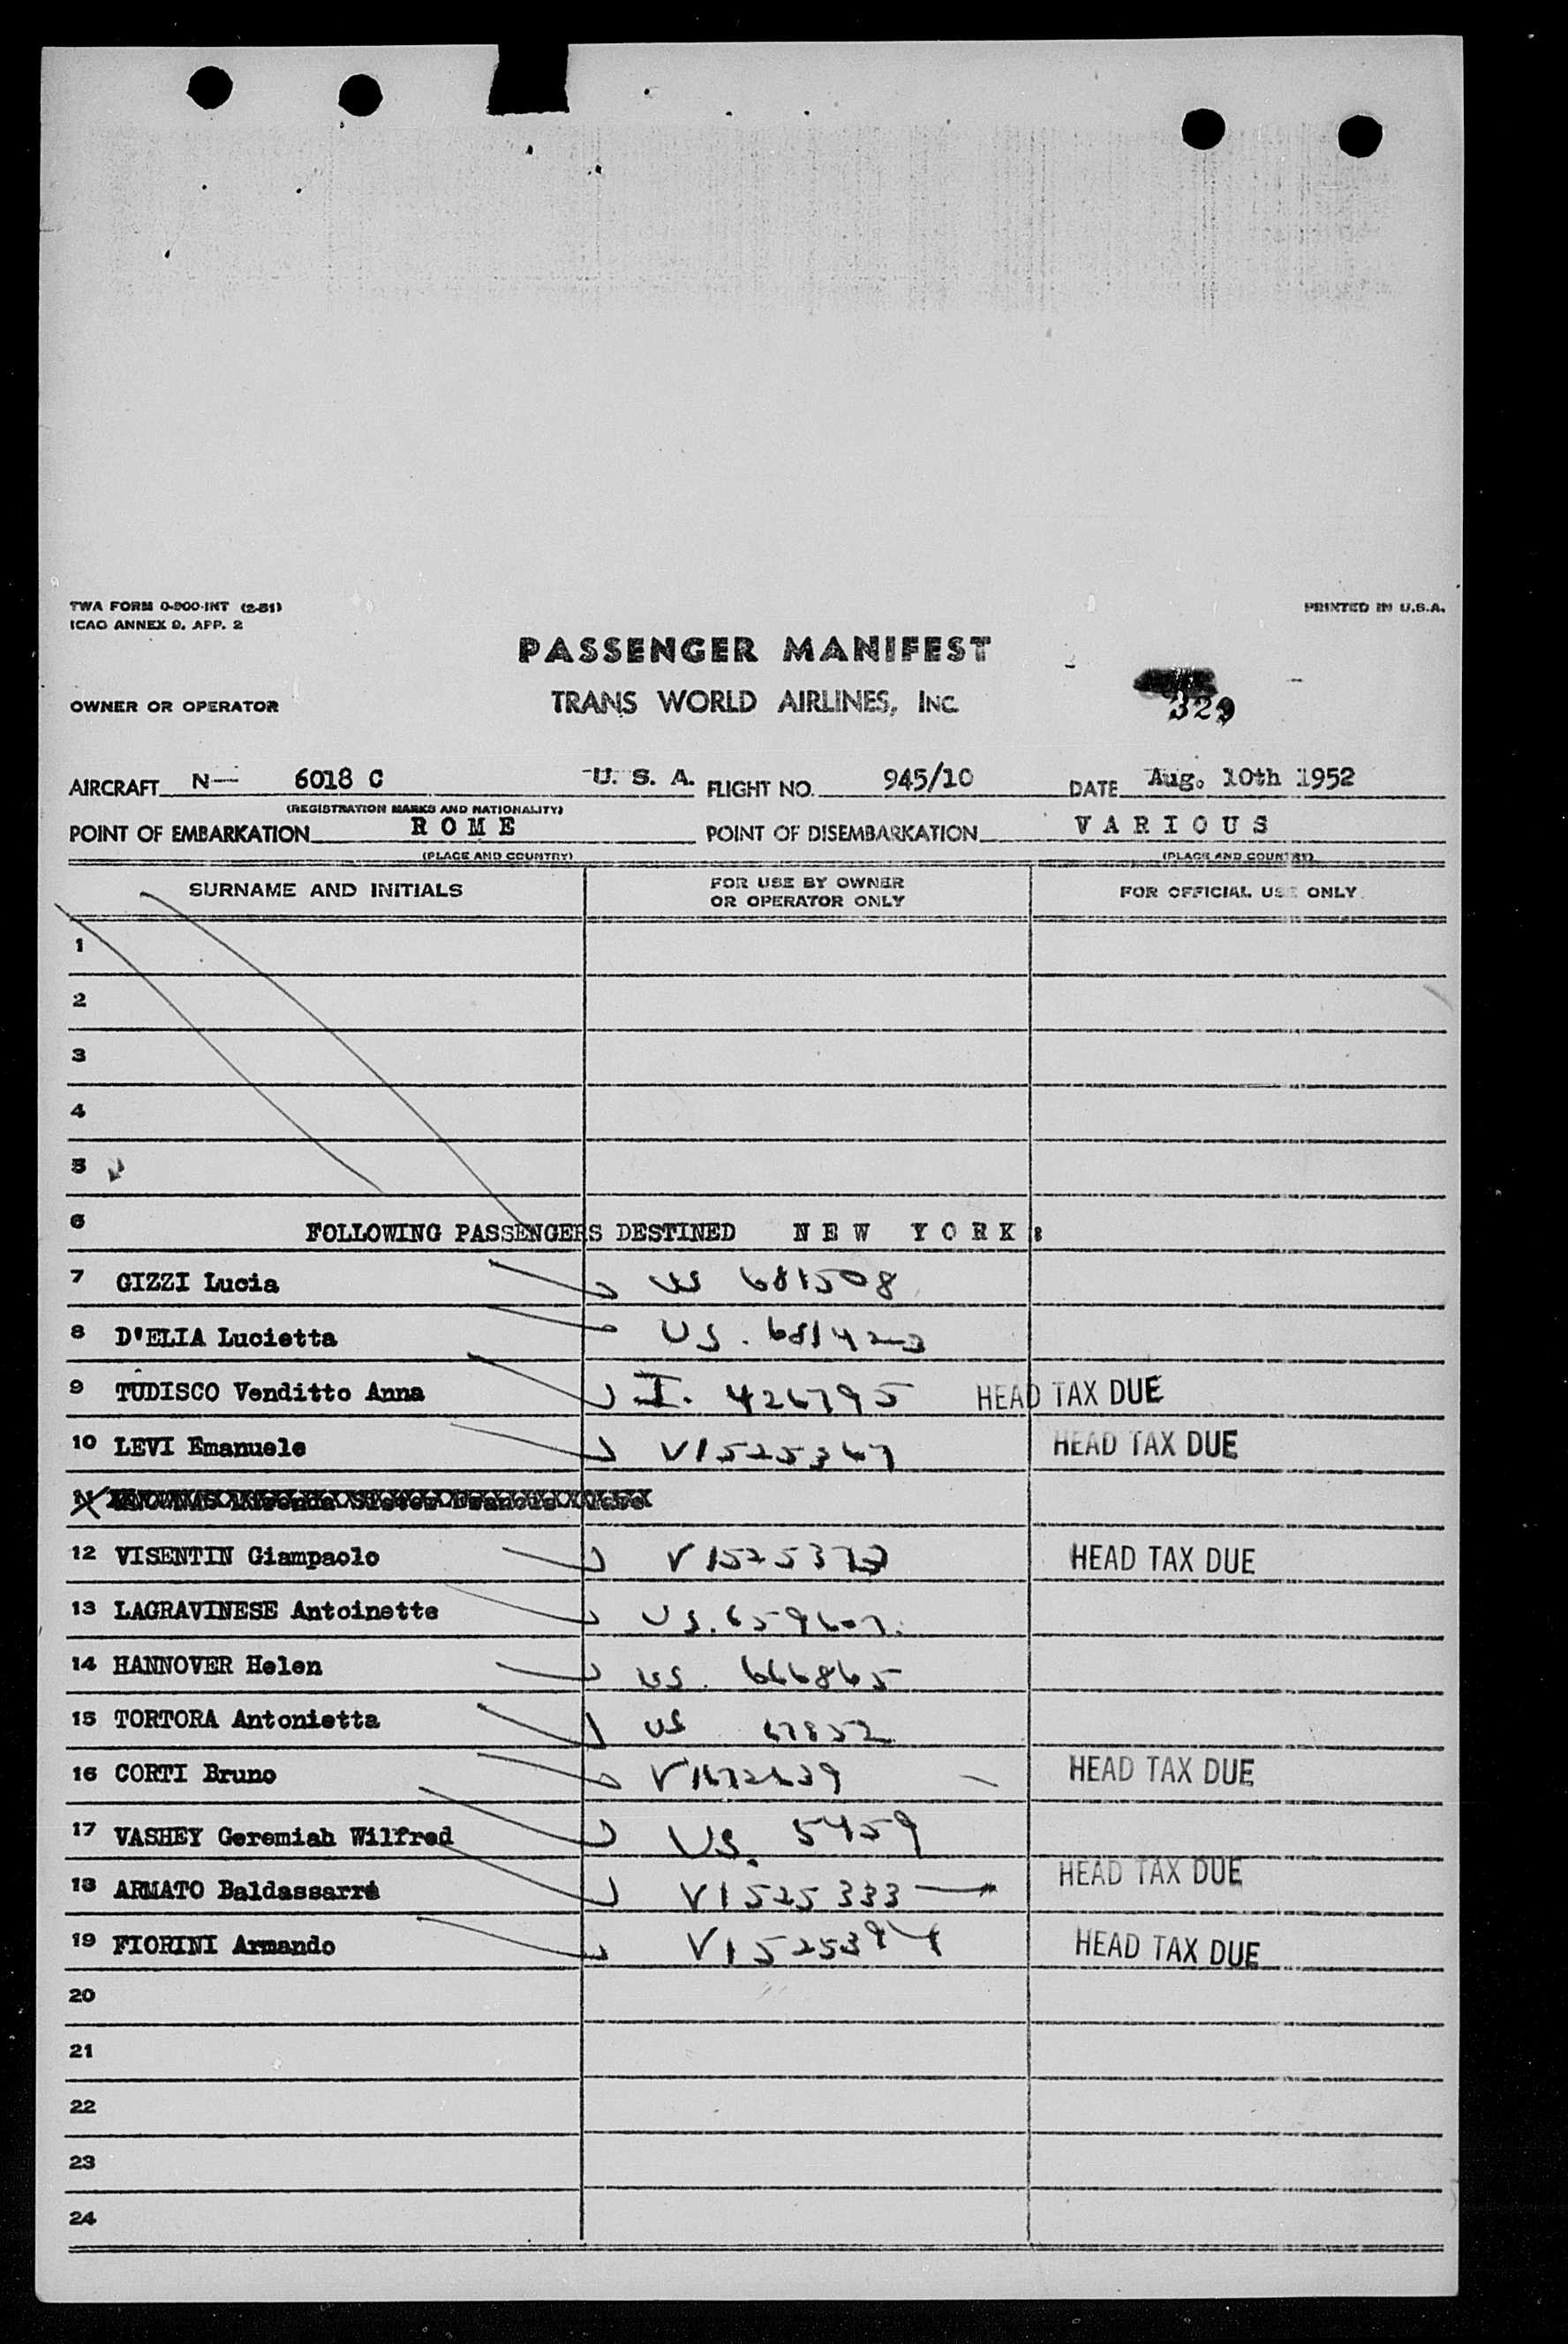 TWA FORM 0-900-INT (2-51)
PRINTED IN U.S.A.
ICAO ANNEX 9, APP. 2
PASSENGER MANIFEST
OWNER OR OPERATOR TRANS WORLD AIRLINES, INC.
329
AIRCRAFT N— 6018 C U. S. A. FLIGHT NO. 945/10 DATE Aug. 10th 1952
(REGISTRATION MARKS AND NATIONALITY)
POINT OF EMBARKATION R O M E POINT OF DISEMBARKATION V A R I O U S
(PLACE AND COUNTRY) (PLACE AND COUNTRY)
SURNAME AND INITIALS FOR USE BY OWNER OR OPERATOR ONLY FOR OFFICIAL USE ONLY
1
2
3
4
5
6 FOLLOWING PASSENGERS DESTINED N E W Y O R K :
7 GIZZI Lucia US 681508
8 D'ELIA Lucietta US. 681423
9 TUDISCO Venditto Anna I. 426795 HEAD TAX DUE
10 LEVI Emanuele V1525367 HEAD TAX DUE
12 VISENTIN Giampaolo V1525373 HEAD TAX DUE
13 LAGRAVINESE Antoinette US. 659607.
14 HANNOVER Helen US. 666865
15 TORTORA Antonietta US 67852
16 CORTI Bruno HEAD TAX DUE
17 VASHEY Geremiah Wilfred US. 5459
18 ARMATO Baldassarre V1525333 HEAD TAX DUE
19 FIORINI Armando V1525394 HEAD TAX DUE
20
21
22
23
24